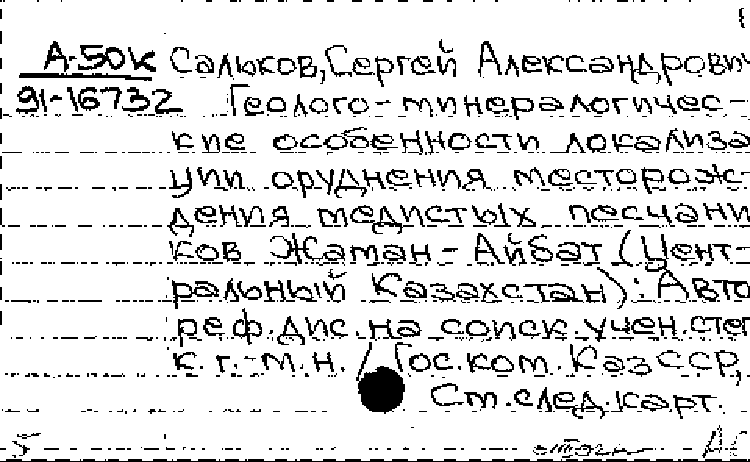 А-50к Сальков, Сергей Александрович
91-16732 Геолого-минералогичес-
кие особенности локализа
ции оруднения месторож-
дения медистых песчани
ков Жаман-Айбат (Цент-
ральный Казахстан): Авто
реф. дис. на соиск. учен. степ
к.г.-м.н. / Гос. ком. КазССР,
См. след. карт.
5